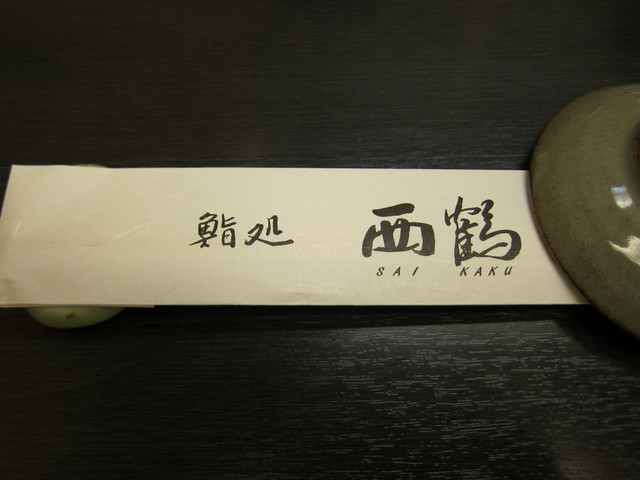 鮨処 西鶴
SAI KAKU